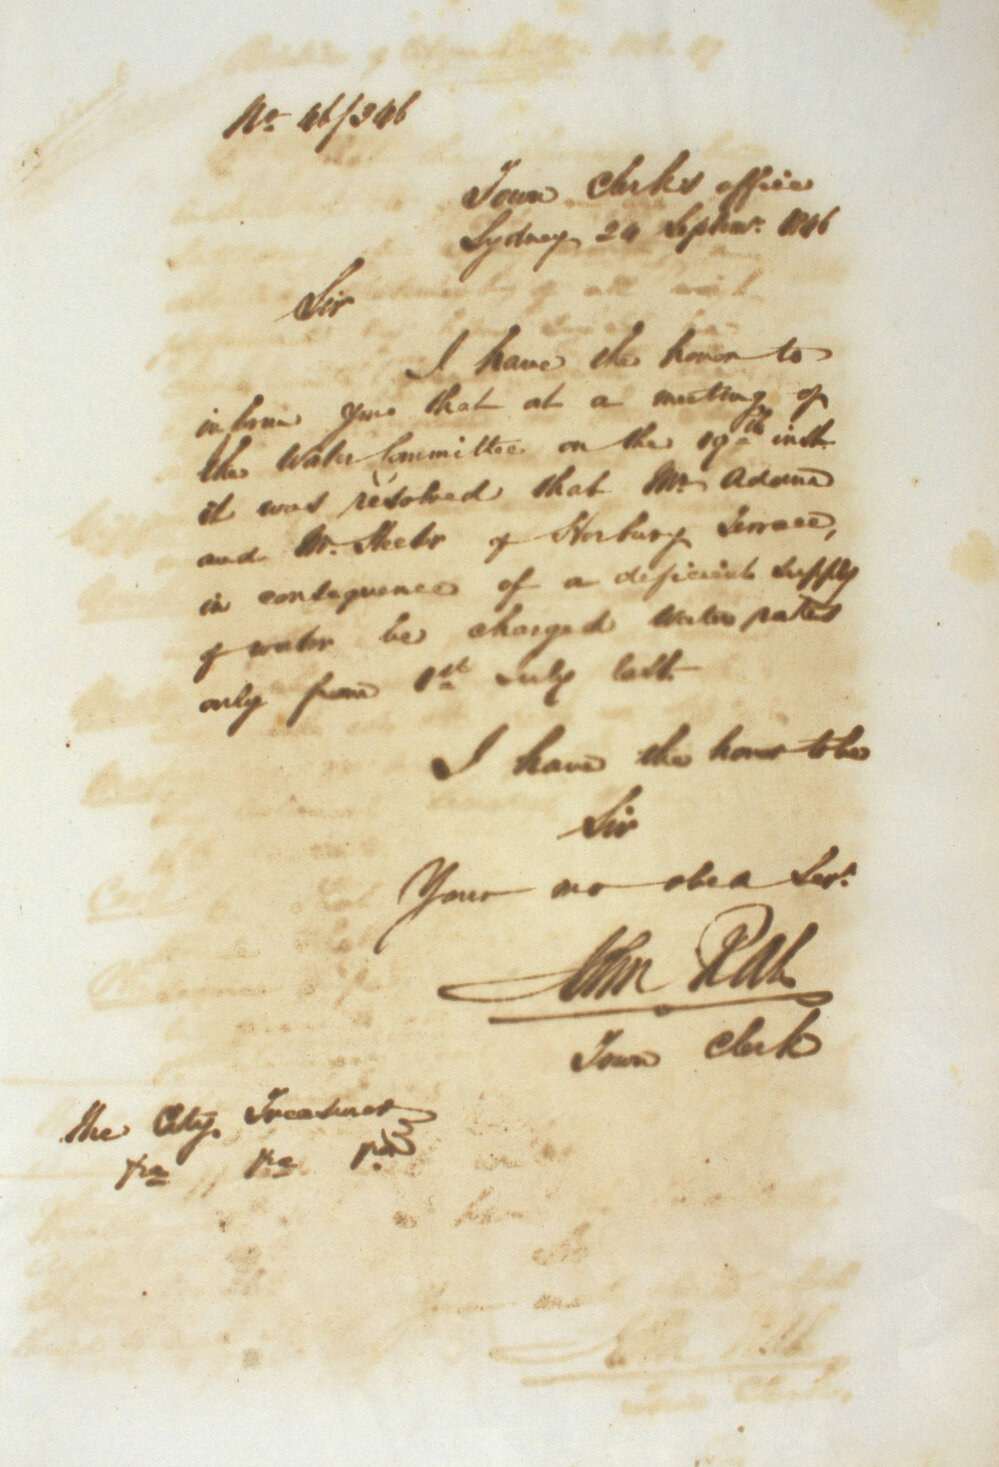 No. 46/346
Town Clerk's office
Sydney 24 Septemr. 1846
Sir
I have the honor to
inform you that at a meeting of
the Water Committee on the 19th inst.
it was resolved that Mr. Adams
and Mr. of Horbury Terrace,
in consequence of a deficient supply
of water be charged Water rates
only from 1st July last.
I have the honor to be
Sir
Your mo obed Sert.
John Rae
Town Clerk
The City Treasurer